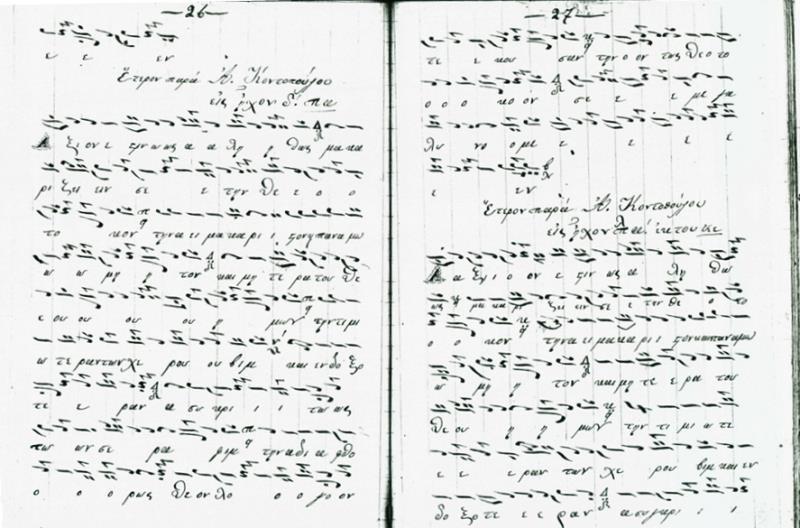 —26—
ε ε ε εν
Ἕτερον παρά Ἀ. Κοντοπούλου
εἰς ἦχον δ΄. πα
Α ξι ον ε στιν ως α α λη η θως μα κα
ρι ζειν ειν σε ε την Θε ε ο ο
το κον την α ει μα κα ρι ι στον
ω ω μη η τον και μη τε ρα του Θε
ε ου ου ου ου η μων την τι μι
ω τε ραν των χε ρου ου βιμ και εν δο ξο
τε ε ραν α συ κρι ι ι τως
των ων σε ρα φιμ την α δι α φθο
ο ο ο ρως Θε ον λο ο ο γο ον
—27—
τε ε κου σαν την ο ον τως Θε ο το
ο ο ο κο ον σε ε ε με γα
λυ νο ο με ε ε ε ε
ε εν
Ἕτερον παρά Ἀ. Κοντοπούλου
εἰς ἦχον πα
Α α ξι ι ο ον ε στιν ως α λη θω
ως μα κα ρι ζειν ειν σε ε την Θε ο το
ο ο κον την α ει μα κα ρι ι στον
ω μη η τον και μη τε ε ρα του
Θε ου η η μων την τι μι ω τε
ε ε ε ραν των χε ρου βιμ και εν
δο ξο τε ε ε ραν α συ γκρι ι ι